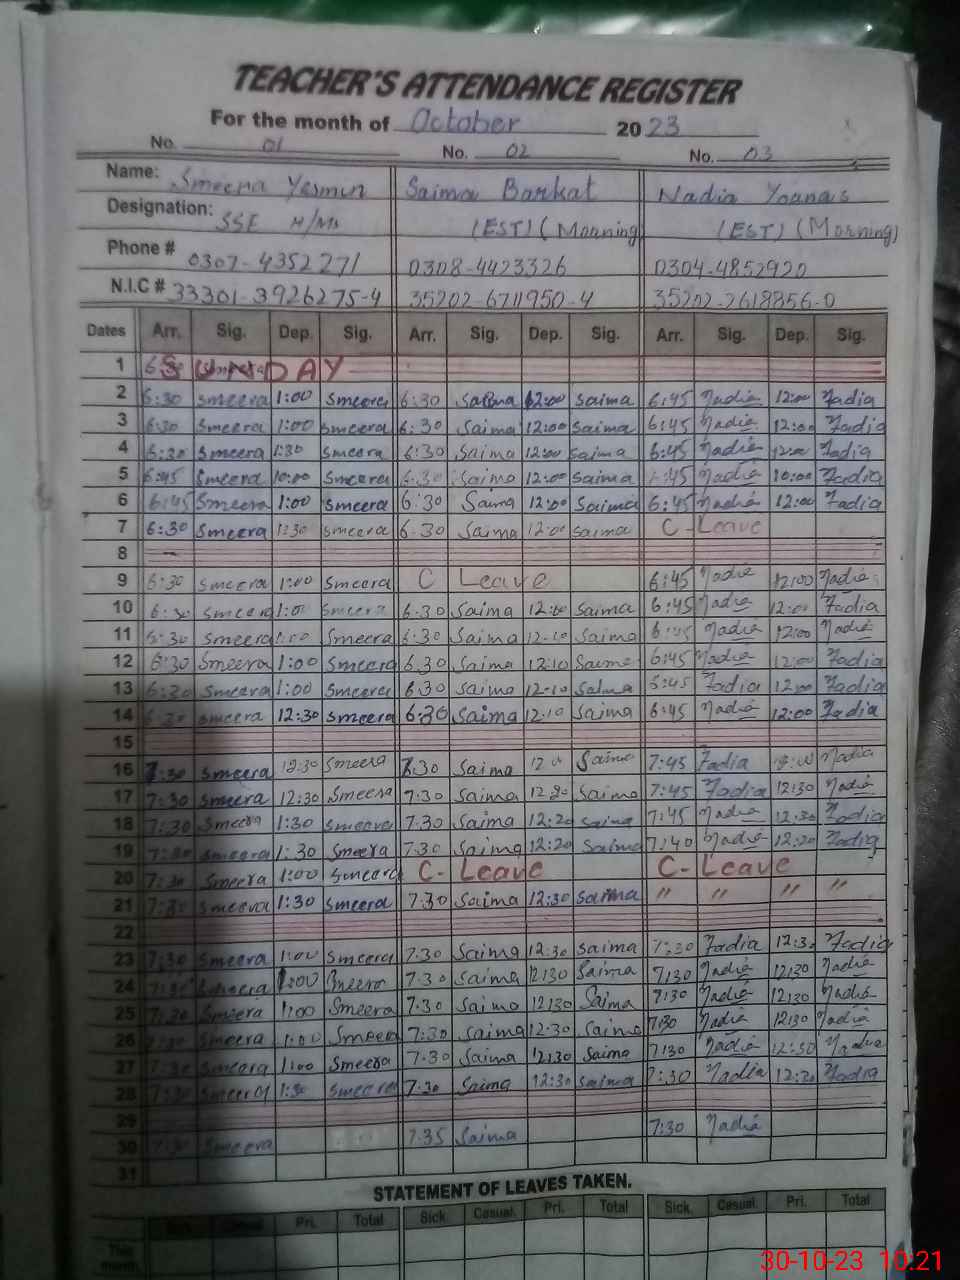 TEACHER'S ATTENDANCE REGISTER
For the month of October 2023
No. 01 No. 02 No. 03
Name: Smeera Saima Barkat Nadia Younas
Designation: SSE H/Ms (EST) (Morning) (EST) (Morning)
Phone # 0307-4352271 0308-4423326 0304-4852920
N.I.C # 33301-3926275-4 35202-6711950-4 35202-2618856-0
Dates Arr. Sig. Dep. Sig. Arr. Sig. Dep. Sig. Arr. Sig. Dep. Sig.
1 SUNDAY
2 6:30 Smeera 1:00 Smeera 6:30 Saima 12:00 Saima 6:45 Nadia 12:00 Nadia
3 6:30 Smeera 1:00 Smeera 6:30 Saima 12:00 Saima 6:45 Nadia 12:00 Nadia
4 6:30 Smeera 1:30 Smeera 6:30 Saima 12:00 Saima 6:45 Nadia 12:00 Nadia
5 6:45 Smeera 10:00 Smeera 6:30 Saima 12:00 Saima 6:45 Nadia 10:00 Nadia
6 6:45 Smeera 1:00 Smeera 6:30 Saima 12:00 Saima 6:45 Nadia 12:00 Nadia
7 6:30 Smeera 1:30 Smeera 6.30 Saima 12:00 Saima C-Leave
8
9 6:30 Smeera 1:00 Smeera C Leave 6:45 Nadia 12:00 Nadia
10 6:30 Smeera 1:00 Smeera 6.30 Saima 12:00 Saima 6:45 Nadia 12:00 Nadia
11 6:30 Smeera 1:00 Smeera 6:30 Saima 12-10 Saima 6:45 Nadia 12:00 Nadia
12 6:30 Smeera 1:00 Smeera 6.30 Saima 12:10 Saima 6:45 Nadia 12:00 Nadia
13 6:30 Smeera 1:00 Smeera 6.30 Saima 12-10 Saima 6:45 Nadia 12:00 Nadia
14 6:30 Smeera 12:30 Smeera 6:30 Saima 12:10 Saima 6:45 Nadia 12:00 Nadia
15
16 7:30 Smeera 12:30 Smeera 7:30 Saima Saima 7:45 Nadia Nadia
17 7:30 Smeera 12:30 Smeera 7:30 Saima 12:20 Saima 7:45 Nadia 12:30 Nadia
18 7:30 Smeera 1:30 Smeera 7.30 Saima 12:20 Saima 7:45 Nadia 12:30 Nadia
19 7:30 Smeera 1:30 Smeera 7.30 Saima 12:20 Saima 7:40 Nadia 12:20 Nadia
20 7:30 Smeera 1:00 Smeera C- Leave C- Leave
21 7:30 Smeera 1:30 Smeera 7.30 Saima 12:30 Saima " " " "
22
23 7:30 Smeera 1:00 Smeera 7:30 Saima 12:30 Saima 7:30 Nadia 12:30 Nadia
24 7:30 Smeera 1:00 Smeera 7:30 Saima 12:30 Saima 7:30 Nadia 12:30 Nadia
25 7:30 Smeera 1:00 Smeera 7:30 Saima 12:30 Saima 7:30 Nadia 12:30 Nadia
26 7:30 Smeera 1:00 Smeera 7:30 Saima 12:30 Saima 7:30 Nadia 12:30 Nadia
27 7:30 Smeera 1:00 Smeera 7:30 Saima 12:30 Saima 7:30 Nadia 12:30 Nadia
28 7:30 Smeera 1:30 Smeera 7:30 Saima 12:30 Saima 7:30 Nadia 12:30 Nadia
29
30 7:30 Smeera 7:35 Saima 7:30 Nadia
31
STATEMENT OF LEAVES TAKEN.
Sick Casual Pri. Total Sick. Casual. Pri. Total Sick. Casual. Pri. Total
This month
30-10-23 10:21